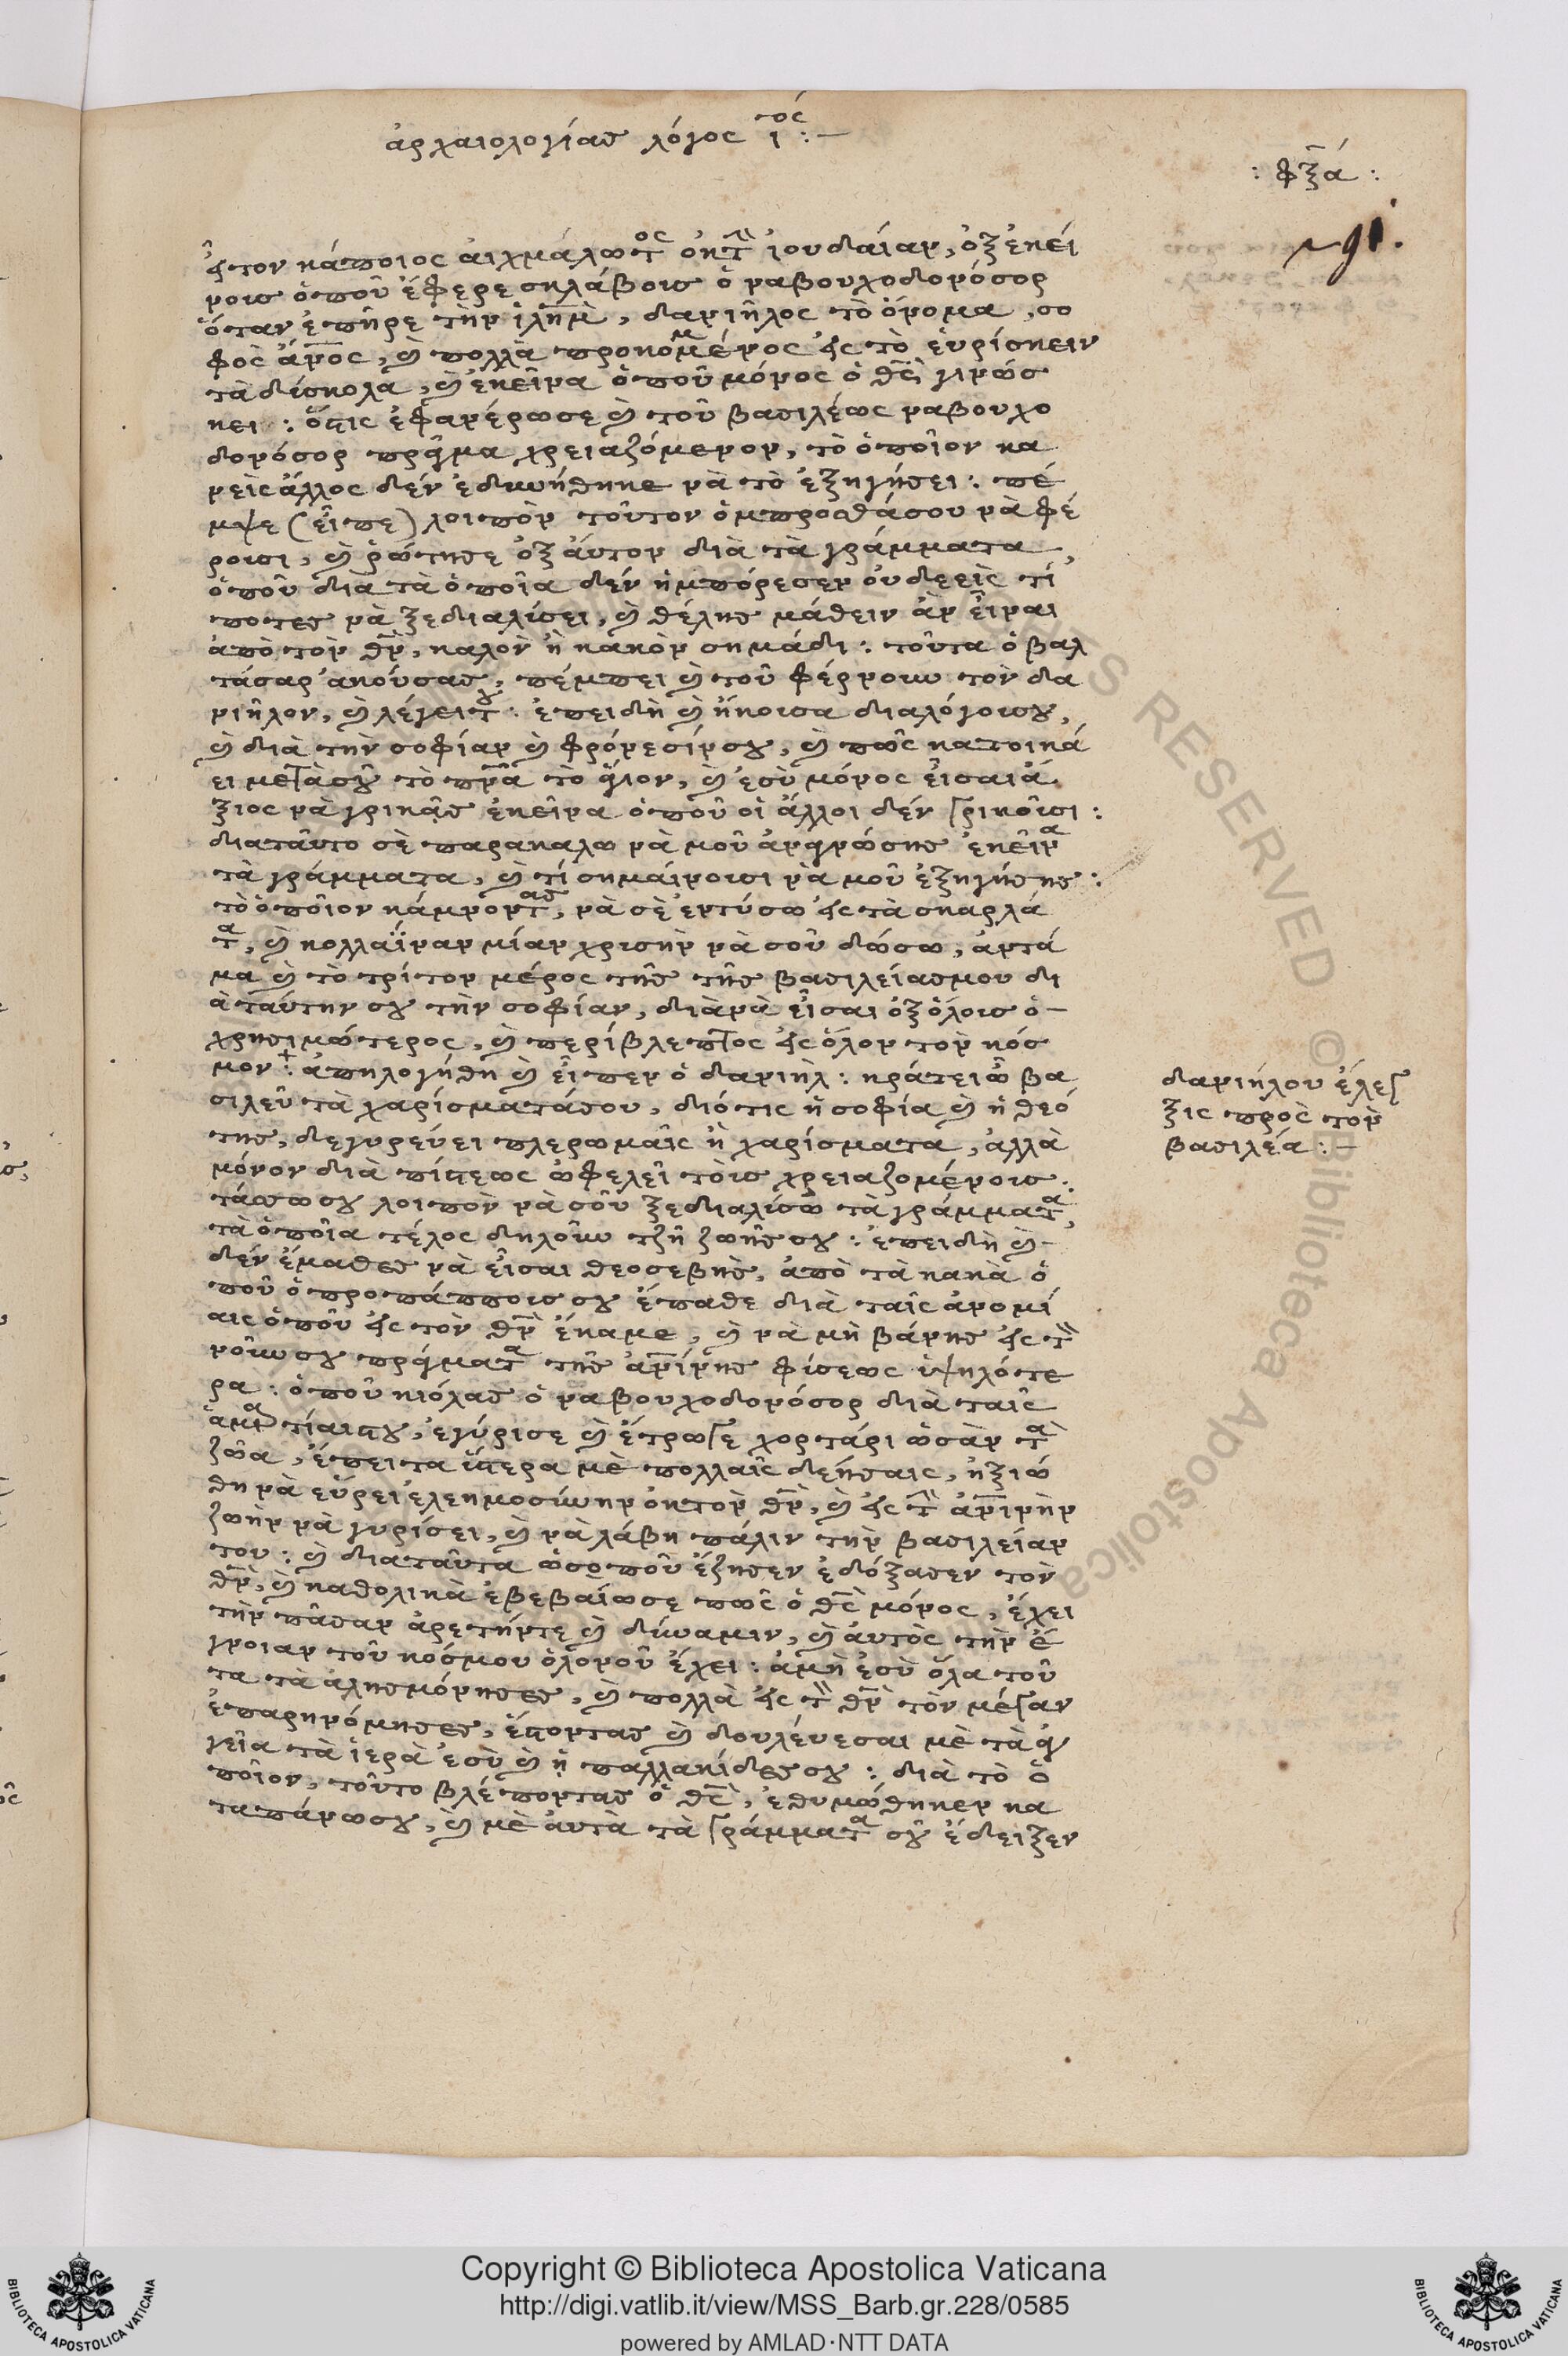 ἀρχαιολογίας λόγος ι τος :—
: φξα :
ἦστον κάποιος αἰχμάλωτος ἐκ τὴν ἰουδαίαν, ἐξ ἐκεί
νους ὁποῦ ἔφερε σκλάβους ὁ ναβουχοδονόσορ
ὅταν ἐπῆρε τὴν ἱλημ, δανιῆλος τὸ ὄνομα, σο
φὸς ἄνος, καὶ πολλὰ προκομμένος εἰς τὸ εὑρίσκειν
τὰ δύσκολα, καὶ ἐκεῖνα ὁποῦ μόνος ὁ θς γινώσ
κει : ὅστις ἐφανέρωσε καὶ τοῦ βασιλέως ναβουχο
δονόσορ πρᾶγμα χρειαζόμενον, τὸ ὁποῖον κα
νεὶς ἄλλος δὲν ἐδυνήθηκε νὰ τὸ ἐξηγήσει : πέ
μψε (εἶπε) λοιπὸν τοῦτον ὀμπροστάσου νὰ φέ
ρουσι, καὶ ῥώτησε ἐξ αὐτον διὰ τὰ γράμματα,
ὁποῦ διὰ τὰ ὁποῖα δὲν ἠμπόρεσεν οὐδεεὶς τί
ποτες νὰ ξεδιαλίσει, καὶ θέλης μάθειν ἂν εἶναι
ἀπὸ τὸν θν, καλὸν ἢ κακὸν σημάδι : τοῦτα ὁ βαλ
τάσαρ ἀκούσας, πέμπει καὶ τοῦ φέρνουν τὸν δα
νιῆλον, καὶ λέγει του : ἐπειδὴ καὶ ἤκουσα διαλόγουσου,
καὶ διὰ τὴν σοφίαν καὶ φρόνεσίνσου, καὶ πῶς κατοικά
ει μετὰ σοῦ τὸ πνα τὸ ἅγιον, καὶ ἐσὺ μόνος εἶσαι ἄ
ξιος νὰ γρικᾷς ἐκεῖνα ὁποῦ οἱ ἄλλοι δὲν γρικοῦσι :
διαταῦτο σὲ παρακαλω νὰ μοῦ ἀναγνώσης ἐκεῖνα
τὰ γράμματα, καὶ τί σημαίνουσι νὰ μοῦ ἐξηγήσης :
τὸ ὁποῖον κάμνοντας, νὰ σὲ ἐντύσω εἰς τὰ σκαρλά
τα, καὶ κολλαΐναν μίαν χρισὴν νὰ σοῦ δώσω, ἀντά
μα καὶ τὸ τρίτον μέρος τῆς τῆς βασιλείασμου δι
ὰ ταύτην σου τὴν σοφίαν, διὰ νὰ εἶσαι ἐξ ὅλους ὁ—
χρησιμώτερος, καὶ περίβλεπτος εἰς ὅλον τὸν κόσ
μον : ἀπηλογήθη καὶ εἶπεν ὁ δανιὴλ : κράτει ὦ βα
σιλεῦ τὰ χαρίσματάσου, διότις ἡ σοφία καὶ ἡ θεό
της, δεγυρεύει πλερωμαῖς ἢ χαρίσματα, ἀλλὰ
μόνον διὰ πίστεως ὠφελεῖ τοὺς χρειαζομένους :
τάσσω σου λοιπὸν νὰ σοῦ ξεδιαλίσω τὰ γράμματα,
τὰ ὁποῖα τέλος δηλοῦν τζῆ ζωῆς σου : ἐπειδὴ καὶ—
δὲν ἔμαθες νὰ εἶσαι θεοσεβὴς, ἀπὸ τὰ κακὰ ὁ
ποῦ ὁ προπάππους σου ἔπαθε διὰ ταῖς ἀνομί
αις ὁποῦ εἰς τὸν θν ἔκαμε, καὶ νὰ μὴ βάνης εἰς τὸν
νοῦν σου πράγματα τῆς ἀνίνης φύσεως ὑψηλότε
ρα : ὁποῦ κιόλας ὁ ναβουχοδονόσορ διὰ ταῖς
ἁμαρτίαις του, ἐγύρισε καὶ ἔτρωγε χορτάρι ὡσὰν τὰ
ζῶα, ἔπειτα ὕστερα μὲ πολλαῖς δεήσαις, ἠξιώ
θη νὰ εὕρει ἐλεημοσύνην ἐκ τὸν θν, καὶ εἰς τὴν ἀνινὴν
ζωὴν νὰ γυρίσει, καὶ νὰ λάβη πάλιν τὴν βασιλείαν
του : καὶ διαταῦτα ὡσοποῦ ἔζησεν ἐδόξασεν τὸν
θν, καὶ καθολικὰ ἐβεβαίωσε πῶς ὁ θς μόνος, ἔχει
τὴν πᾶσαν ἀρετήντε καὶ δύναμιν, καὶ αὐτὸς τὴν ἔ
γνοιαν τοῦ κόσμου ὁλονοῦ ἔχει : ἀμὴ ἐσὺ ὅλα τοῦ
τα τὰ ἀλησμόνησες, καὶ πολλὰ εἰς τὸν θν τὸν μέγαν
ἐπαρηνόμησες, ἔστοντας καὶ δουλέυεσαι μὲ τὰ ἀγ
γεῖα τὰ ἱερὰ ἐσὺ καὶ ἡ παλλακίδες σου : διὰ τὸ ὁ
ποῖον, τοῦτο βλέποντας ὁ θς, ἐθυμώθηκεν κα
ταπάνωσου, καὶ μὲ αὐτὰ τὰ γράμματα σοῦ ἔδειξεν
δανιήλου ἔλεγ
ξις πρὸς τὸν
βασιλέα : —
RES RESERVED © Biblioteca Apostolica
BIBLIOTECA APOSTOLICA VATICANA
Copyright © Biblioteca Apostolica Vaticana
http://digi.vatlib.it/view/MSS_Barb.gr.228/0585
powered by AMLAD·NTT DATA
BIBLIOTECA APOSTOLICA VATICANA